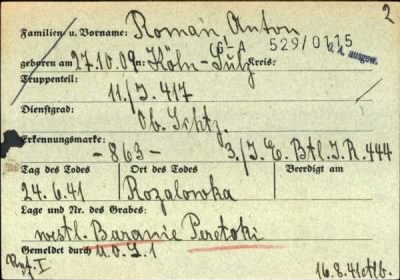 2
Familien u. Vorname: Roman, Anton
G-A 529/0115
geboren am 27.10.09 in: Köln-Sülz Kreis:
Truppenteil:
11./J. 417
Dienstgrad:
Ob. Schtz.
Erkennungsmarke:
- 863 - 3./J. E. Btl. J.R. 444
Tag des Todes Ort des Todes Beerdigt am
24.6.41 Rozalowka
Lage und Nr. des Grabes:
westl. Baranie Peretoki
Gemeldet durch U.O.J.1
16.8.41